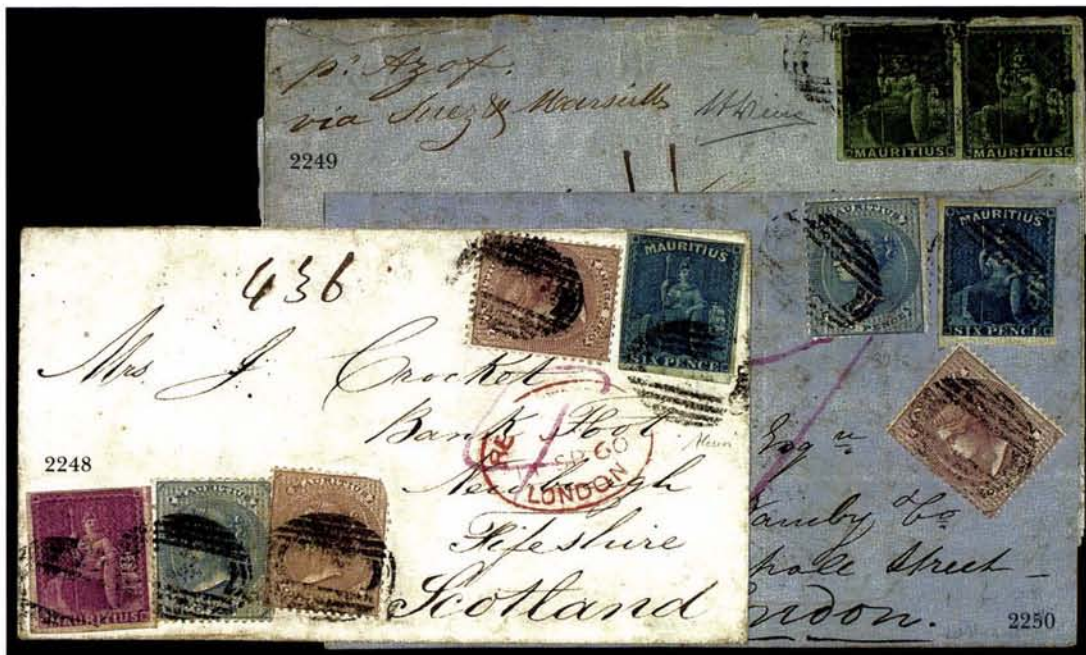 pr. Azof.
via Suez & Marseilles
2249
MAURITIUS
MAURITIUS
MAURITIUS
MAURITIUS
SIX PENCE
436
MAURITIUS
SIX PENCE
Mrs. J. Crocket
Bank Foot
Newburgh
Fifeshire
Scotland
SP 60
LONDON
2248
MAURITIUS
MAURITIUS
MAURITIUS
Esqre
& Co
Street
London.
2250